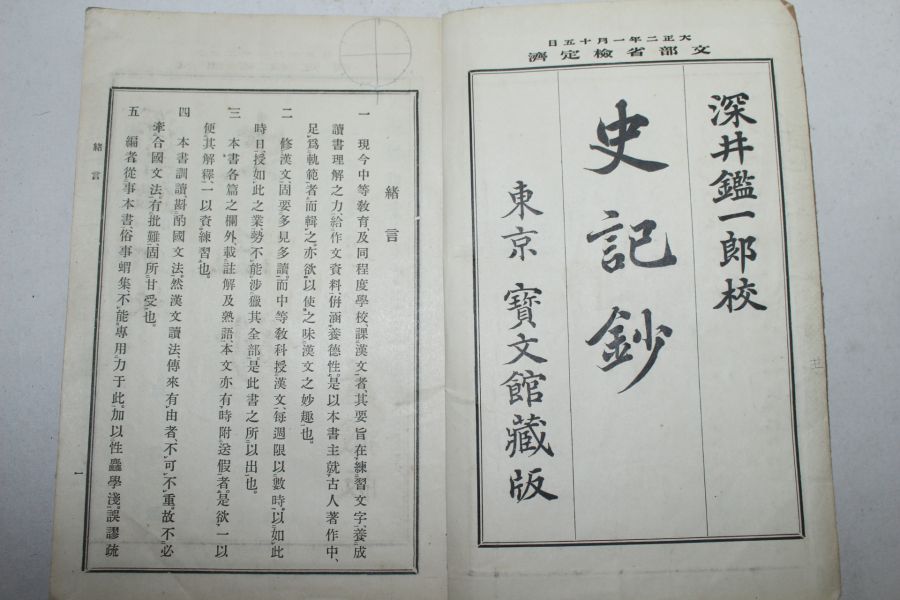 大正二年一月十五日
文部省檢定濟
深井鑑一郎校
史記鈔
東京 寶文館藏版
緒言
一 現今中等敎育、及同程度學校、課漢文者、其要旨在練習文字、養成
讀書理解之力、給作文資料、倂涵養德性。是以本書主就古人著作中、
足爲軌範者、而輯之、亦欲以使之味漢文之妙趣也。
二 修漢文、固要多見多讀。而中等敎科授漢文、每週限以數時。以如此
時日、授如此之業、勢不能涉獵其全部。是此書之所以出也。
三 本書各篇之欄外、載註解及熟語、本文亦有時附送假者。是欲一以
便其解釋、一以資練習也。
四 本書訓讀、斟酌國文法。然漢文讀法傳來有由者、不可不重。故不必
牽合國文法、有批難固所甘受也。
五 編者從事本書、俗事蝟集、不能專用力于此。加以性麤學淺。誤謬疏
緒言
一